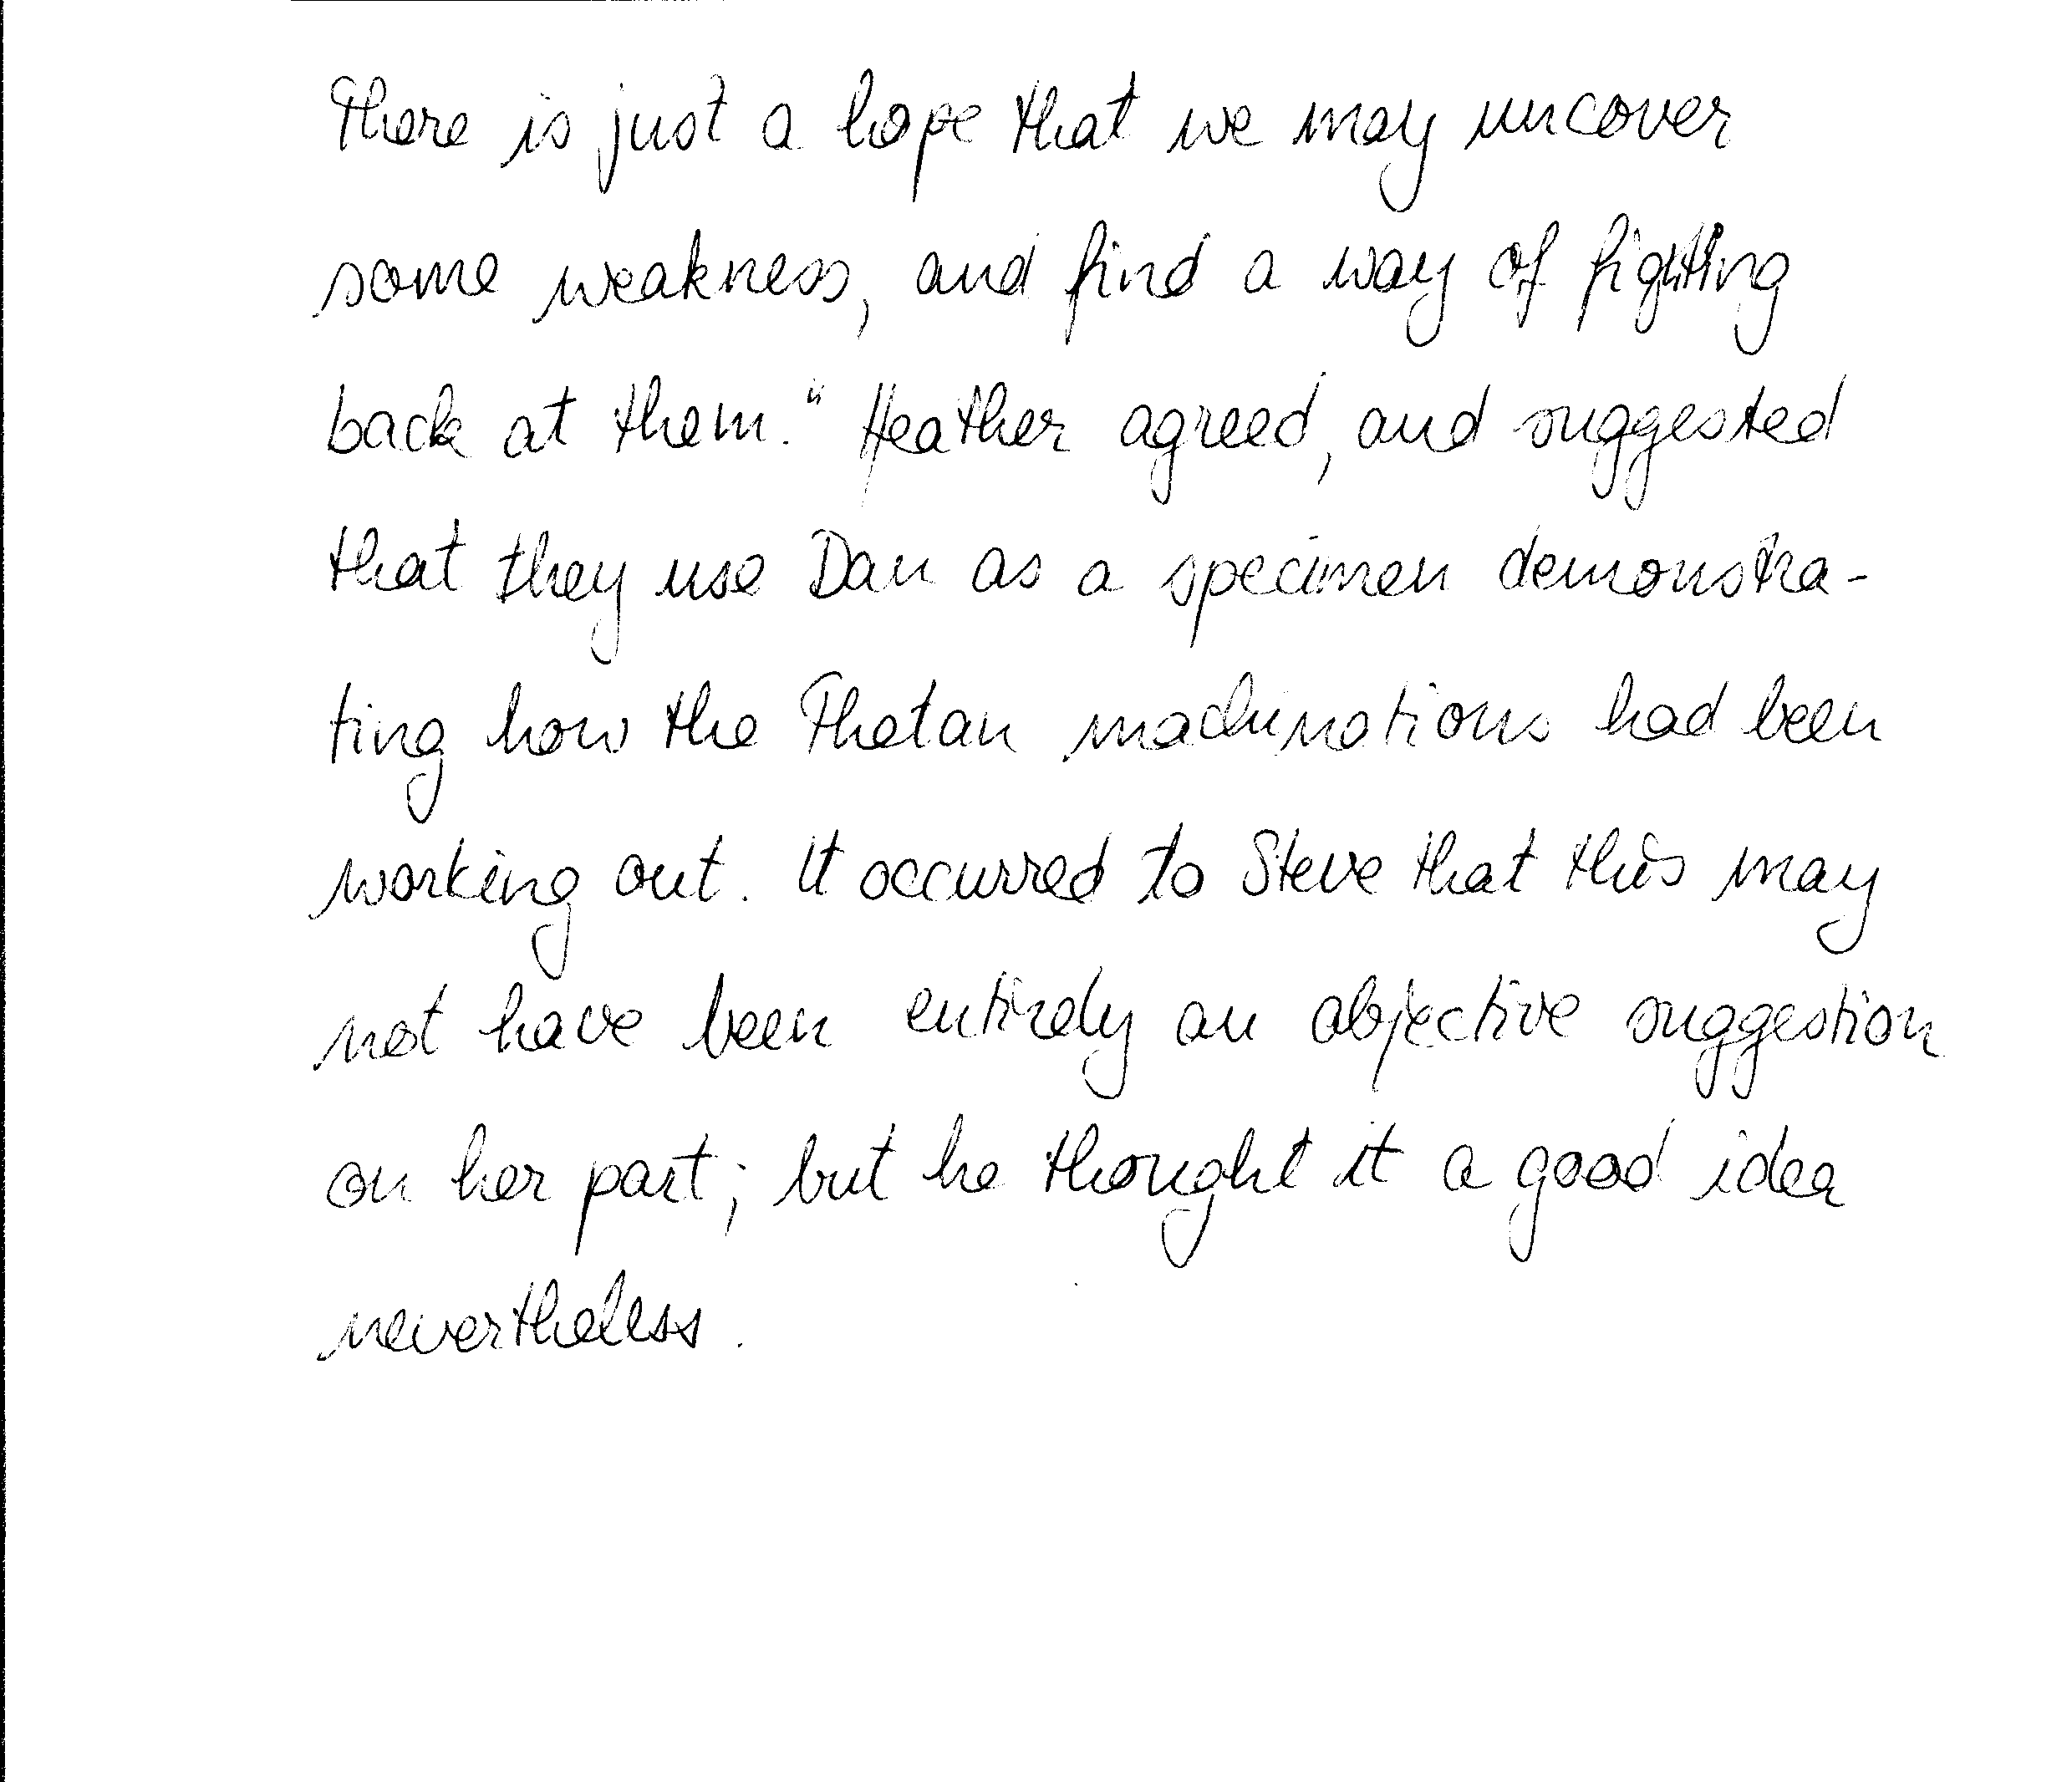 There is just a hope that we may uncover
some weakness, and find a way of fighting
back at them." Heather agreed, and suggested
that they use Dan as a specimen demonstra-
ting how the Thetan machinations had been
working out. It occurred to Steve that this may
not have been entirely an objective suggestion
on her part; but he thought it a good idea
nevertheless.